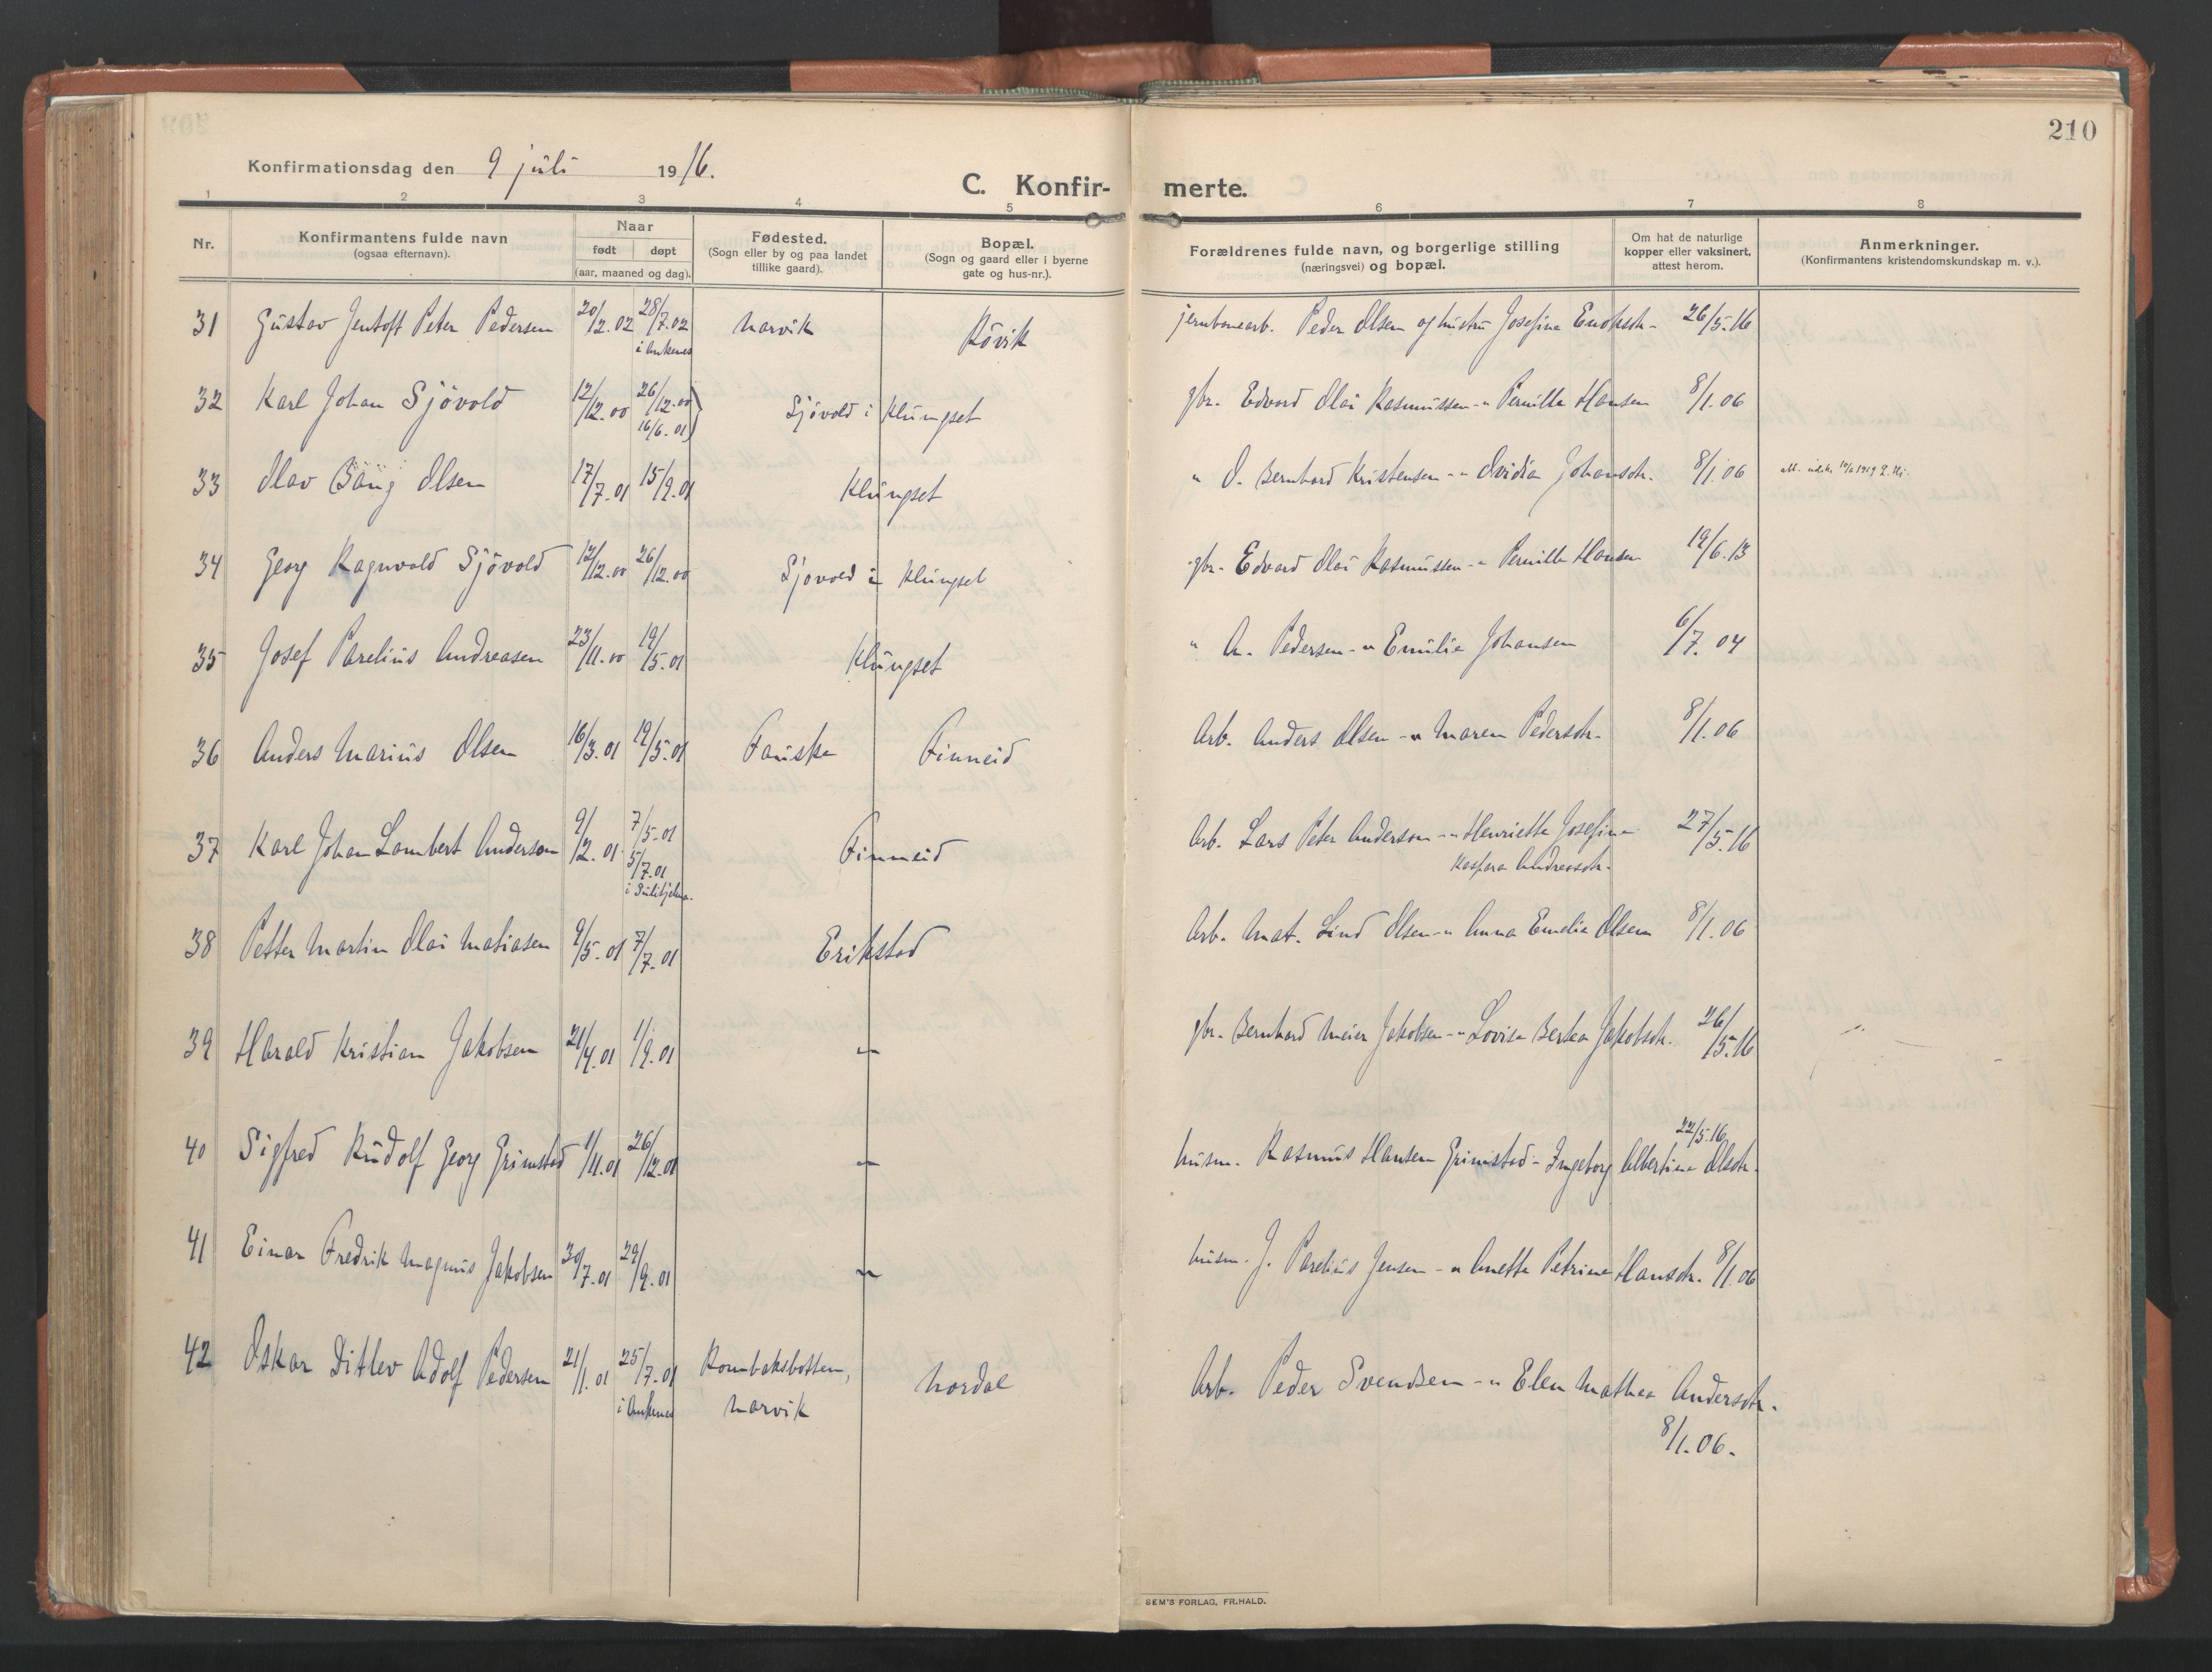 210
Konfirmationsdag den 9 juli 1916.
C. Konfir- merte.
1 2 3 4 5 6 7 8
Nr.
Konfirmantens fulde navn
(ogsaa efternavn).
Naar
født døpt
(aar, maaned og dag).
Fødested.
(Sogn eller by og paa landet
tillike gaard).
Bopæl.
(Sogn og gaard eller i byerne
gate og hus-nr.).
Forældrenes fulde navn, og borgerlige stilling
(næringsvei) og bopæl.
Om hat de naturlige
kopper eller vaksinert,
attest herom.
Anmerkninger.
(Konfirmantens kristendomskundskap m. v.).
31 Gustav Jentoft Peter Pedersen 20/12.02 28/7.02 Narvik Rövik jernbanearb. Peder Olsen og hustru Josefine Enoksdtr. 26/5.16
i Ankenes
32 Karl Johan Sjövold 12/12.00 26/12.00 Sjövold i Klungset gbr. Edvard Olai Rasmussen - " Pernille Hansen 8/1.06
16/6.01
33 Olav Bang Olsen 17/7.01 15/9.01 Klungset " O. Bernhard Kristensen - " Ovidia Johansdtr. 8/1.06
34 Georg Ragnvald Sjövold 12/12.00 26/12.00 Sjövold i Klungset gbr. Edvard Olai Rasmussen - " Pernille Hansen 19/6.13
35 Josef Parelius Andreasen 23/11.00 19/5.01 Klungset " A. Pedersen - " Emilie Johansen 6/7.04
36 Anders Marius Olsen 16/3.01 19/5.01 Fauske Finneid Arb. Anders Olsen - " Maren Pedersdtr. 8/1.06
37 Karl Johan Lambert Anderson 9/2.01 7/5.01 Finneid Arb. Lars Peter Anderson - " Henriette Josefine 27/5.16
5/7.01 Kaspara Andreasdtr.
i Sulitjelma.
38 Petter Martin Olai Matiasen 9/5.01 7/7.01 Erikstad Arb. Mat. Lind Olsen - " Anna Emelie Olsen 8/1.06
39 Harald Kristian Jakobsen 21/4.01 1/9.01 " gbr. Bernhard Meier Jakobsen - " Lovise Berka Jakobsdtr. 26/5.16
22/5.16
40 Sigfred Rudolf Georg Grimstad 1/11.01 26/12.01 " husm. Rasmus Hansen Grimstad - Ingeborg Albertine Olsdtr.
41 Einar Fredrik Magnus Jakobsen 30/7.01 29/9.01 " husm. J. Parelius Jensen - " Anette Petrine Hansdtr. 8/1.06
42 Oskar Ditlev Adolf Pedersen 21/1.01 25/7.01 Rombaksbotten, Nordal Arb. Peder Svendsen - " Elen Mathea Andersdtr.
i Ankenes Narvik
8/1.06.
SEM'S FORLAG, FR.HALD.